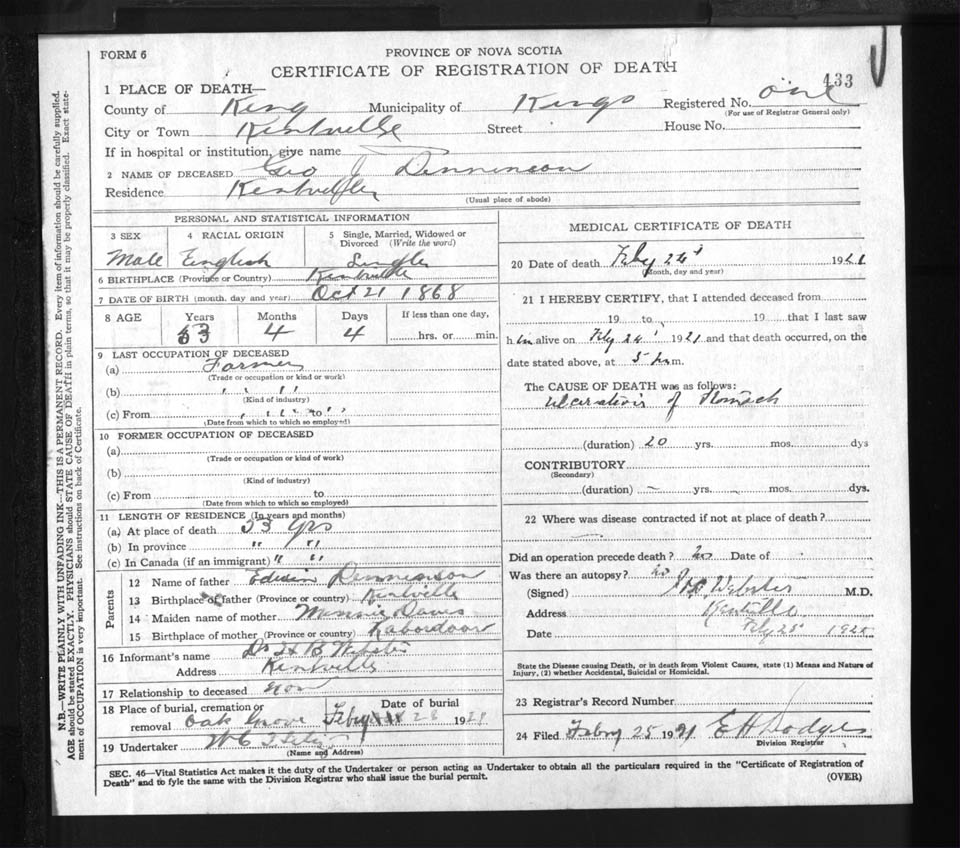 FORM 6
PROVINCE OF NOVA SCOTIA
CERTIFICATE OF REGISTRATION OF DEATH
433
1 PLACE OF DEATH—
County of King Municipality of Kings Registered No. one
(For use of Registrar General only)
City or Town Kentville Street House No.
If in hospital or institution, give name
2 NAME OF DECEASED Geo J Dennineson
Residence Kentville
(Usual place of abode)
PERSONAL AND STATISTICAL INFORMATION
3 SEX 4 RACIAL ORIGIN 5 Single, Married, Widowed or Divorced (Write the word)
Male English Single
6 BIRTHPLACE (Province or Country) Kentville
7 DATE OF BIRTH (month, day and year) Oct 21 1868
8 AGE Years Months Days If less than one day,
53 4 4 hrs. or min.
9 LAST OCCUPATION OF DECEASED
(a) Farmer
(Trade or occupation or kind or work)
(b) " "
(Kind of industry)
(c) From to
(Date from which to which so employed)
10 FORMER OCCUPATION OF DECEASED
(a)
(Trade or occupation or kind of work)
(b)
(Kind of industry)
(c) From to
(Date from which to which so employed)
11 LENGTH OF RESIDENCE (In years and months)
(a) At place of death 53 yrs
(b) In province " "
(c) In Canada (if an immigrant) " "
Parents
12 Name of father Dennienson
13 Birthplace of father (Province or country) Kentville
14 Maiden name of mother Minnie Davis
15 Birthplace of mother (Province or country)
16 Informant's name Dr H B Webster
Address Kentville
17 Relationship to deceased non
18 Place of burial, cremation or removal Oak Grove Date of burial Febry 28 1921
19 Undertaker W C
(Name and Address)
MEDICAL CERTIFICATE OF DEATH
20 Date of death Feby 24 1921
(Month, day and year)
21 I HEREBY CERTIFY, that I attended deceased from
19 to 19 that I last saw
him alive on Feby 24 1921 and that death occurred, on the
date stated above, at 5 p m.
The CAUSE OF DEATH was as follows:
ulceration of stomach
(duration) 20 yrs. mos. dys
CONTRIBUTORY
(Secondary)
(duration) yrs. mos. dys.
22 Where was disease contracted if not at place of death?
Did an operation precede death? no Date of
Was there an autopsy? no
(Signed) Webster M.D.
Address Kentville
Date Feby 25 1921
State the Disease causing Death, or in death from Violent Causes, state (1) Means and Nature of
Injury, (2) whether Accidental, Suicidal or Homicidal.
23 Registrar's Record Number
24 Filed Febry 25 1921 E H Dodge
Division Registrar
SEC. 46—Vital Statistics Act makes it the duty of the Undertaker or person acting as Undertaker to obtain all the particulars required in the "Certificate of Registration of
Death" and to fyle the same with the Division Registrar who shall issue the burial permit.
(OVER)
N.B.—WRITE PLAINLY, WITH UNFADING INK—THIS IS A PERMANENT RECORD. Every item of information should be carefully supplied.
AGE should be stated EXACTLY. PHYSICIANS should STATE CAUSE OF DEATH in plain terms, so that it may be properly classified. Exact state-
ment of OCCUPATION is very important. See instructions on back of Certificate.